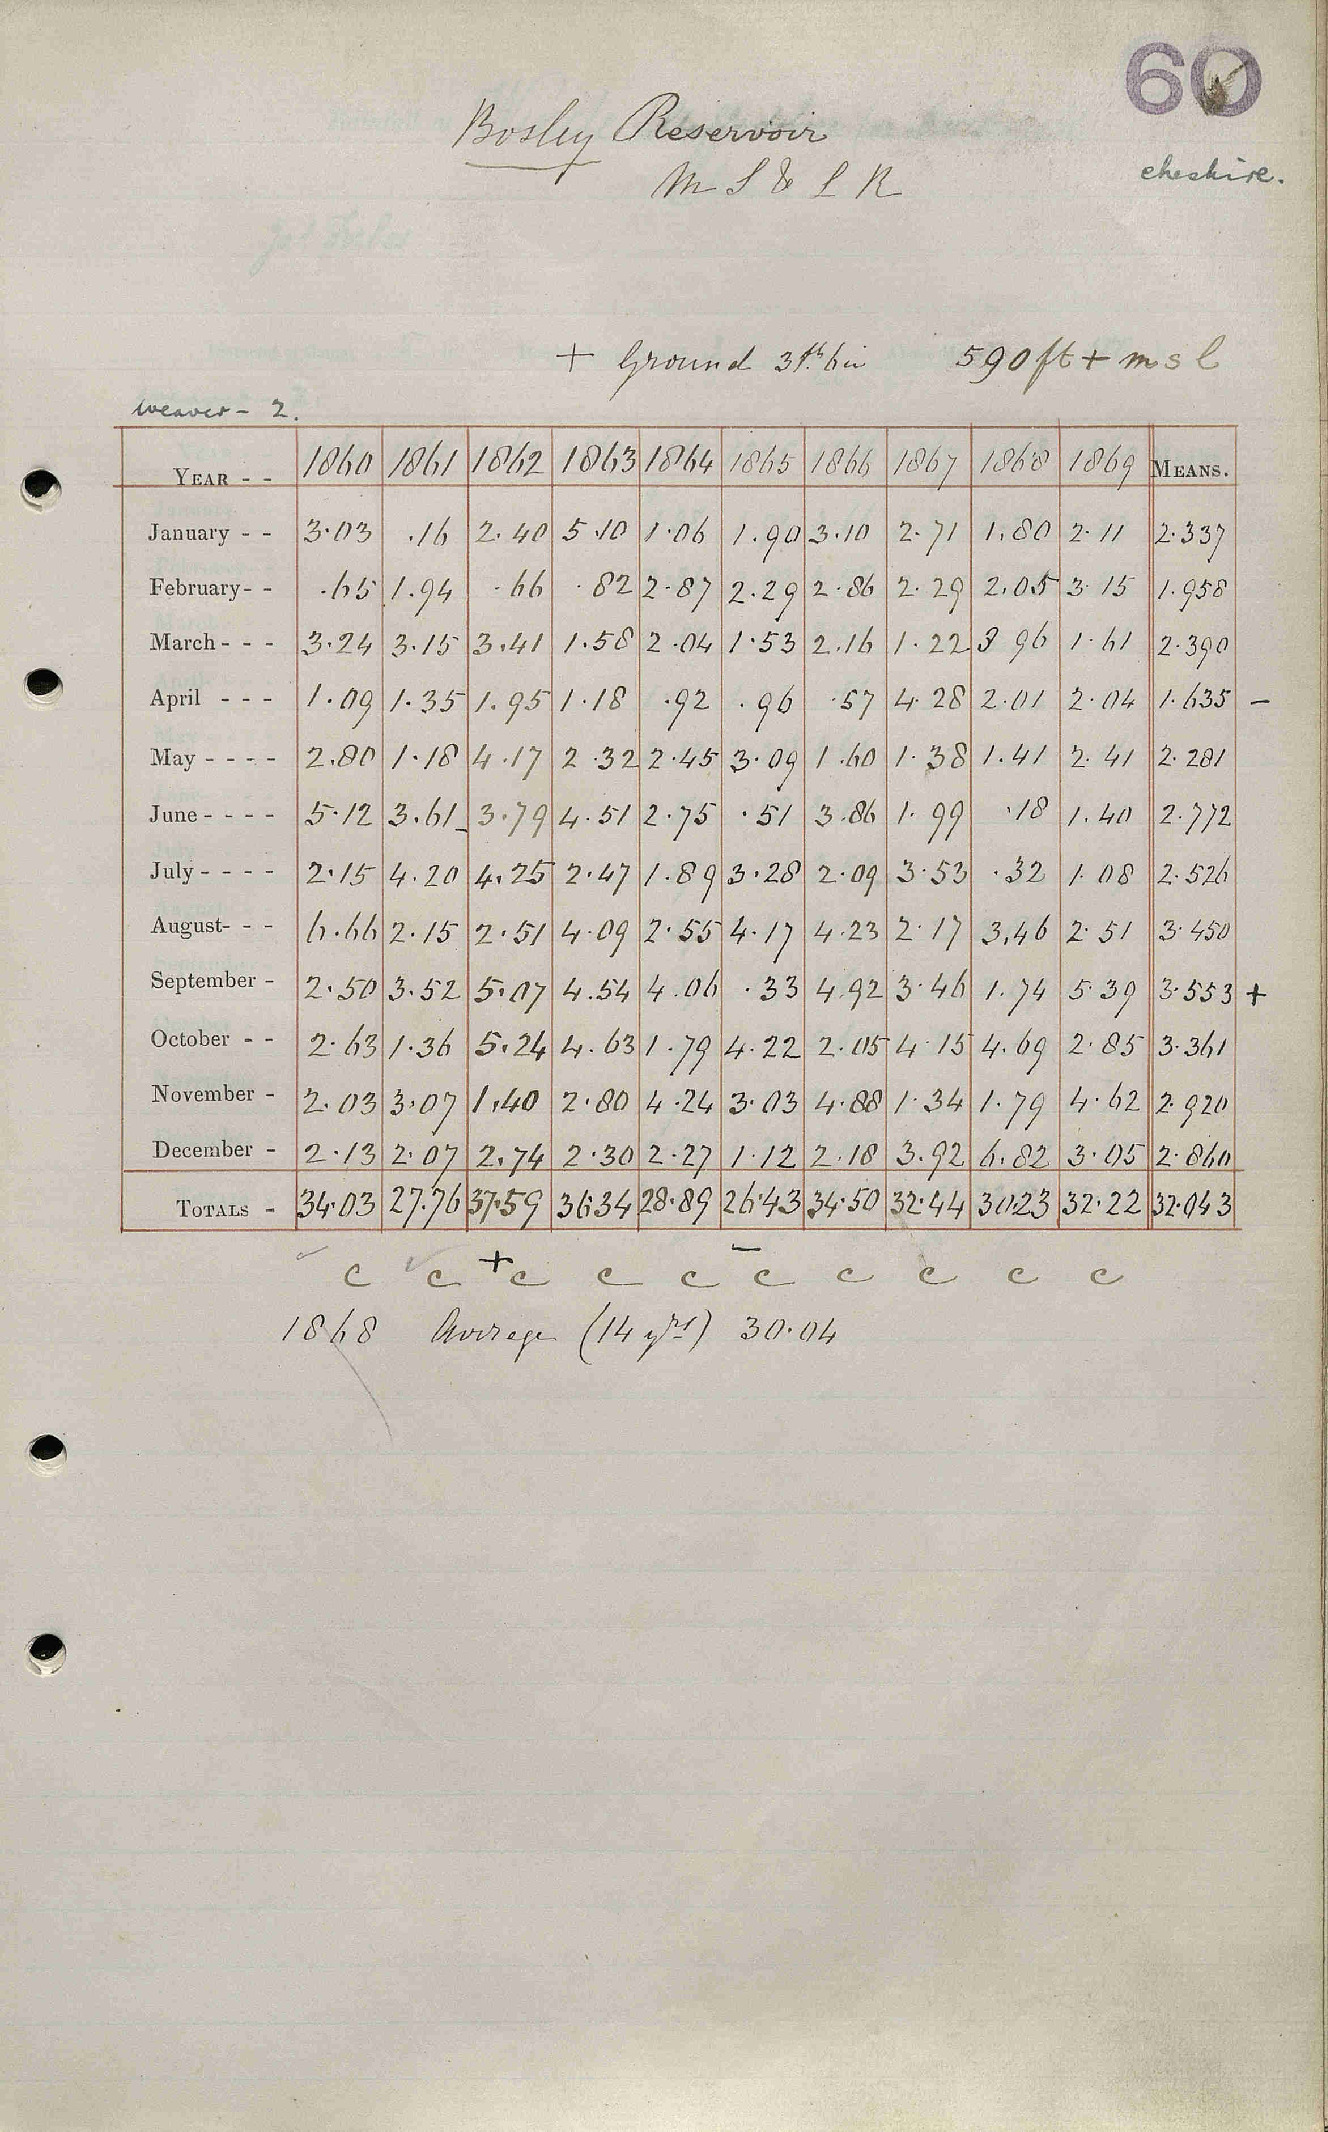 60
Bosley Reservoir
M S & L R
cheshire.
+ Ground 3ft 6in 590ft + m s l
weaver - 2.
YEAR - - 1860 1861 1862 1863 1864 1865 1866 1867 1868 1869 MEANS.
January - - 3.03 .16 2.40 5.10 1.06 1.90 3.10 2.71 1.80 2.11 2.337
February - - .65 1.94 .66 .82 2.87 2.29 2.86 2.29 2.05 3.15 1.958
March - - - 3.24 3.15 3.41 1.58 2.04 1.53 2.16 1.22 3 96 1.61 2.390
April - - - 1.09 1.35 1.95 1.18 .92 .96 .57 4.28 2.01 2.04 1.635 -
May - - - - 2.80 1.18 4.17 2.32 2.45 3.09 1.60 1.38 1.41 2.41 2.281
June - - - - 5.12 3.61 3.79 4.51 2.75 .51 3.86 1.99 .18 1.40 2.772
July - - - - 2.15 4.20 4.25 2.47 1.89 3.28 2.09 3.53 .32 1.08 2.526
August - - - 6.66 2.15 2.51 4.09 2.55 4.17 4.23 2.17 3.46 2.51 3.450
September - 2.50 3.52 5.07 4.54 4.06 .33 4.92 3.46 1.74 5.39 3.553 +
October - - 2.63 1.36 5.24 4.63 1.79 4.22 2.05 4.15 4.69 2.85 3.361
November - 2.03 3.07 1.40 2.80 4.24 3.03 4.88 1.34 1.79 4.62 2.920
December - 2.13 2.07 2.74 2.30 2.27 1.12 2.18 3.92 6.82 3.05 2.860
TOTALS - 34.03 27.76 37.59 36.34 28.89 26.43 34.50 32.44 30.23 32.22 32.043
c c + c c c - c c c c c
1868 Average (14 yrs) 30.04